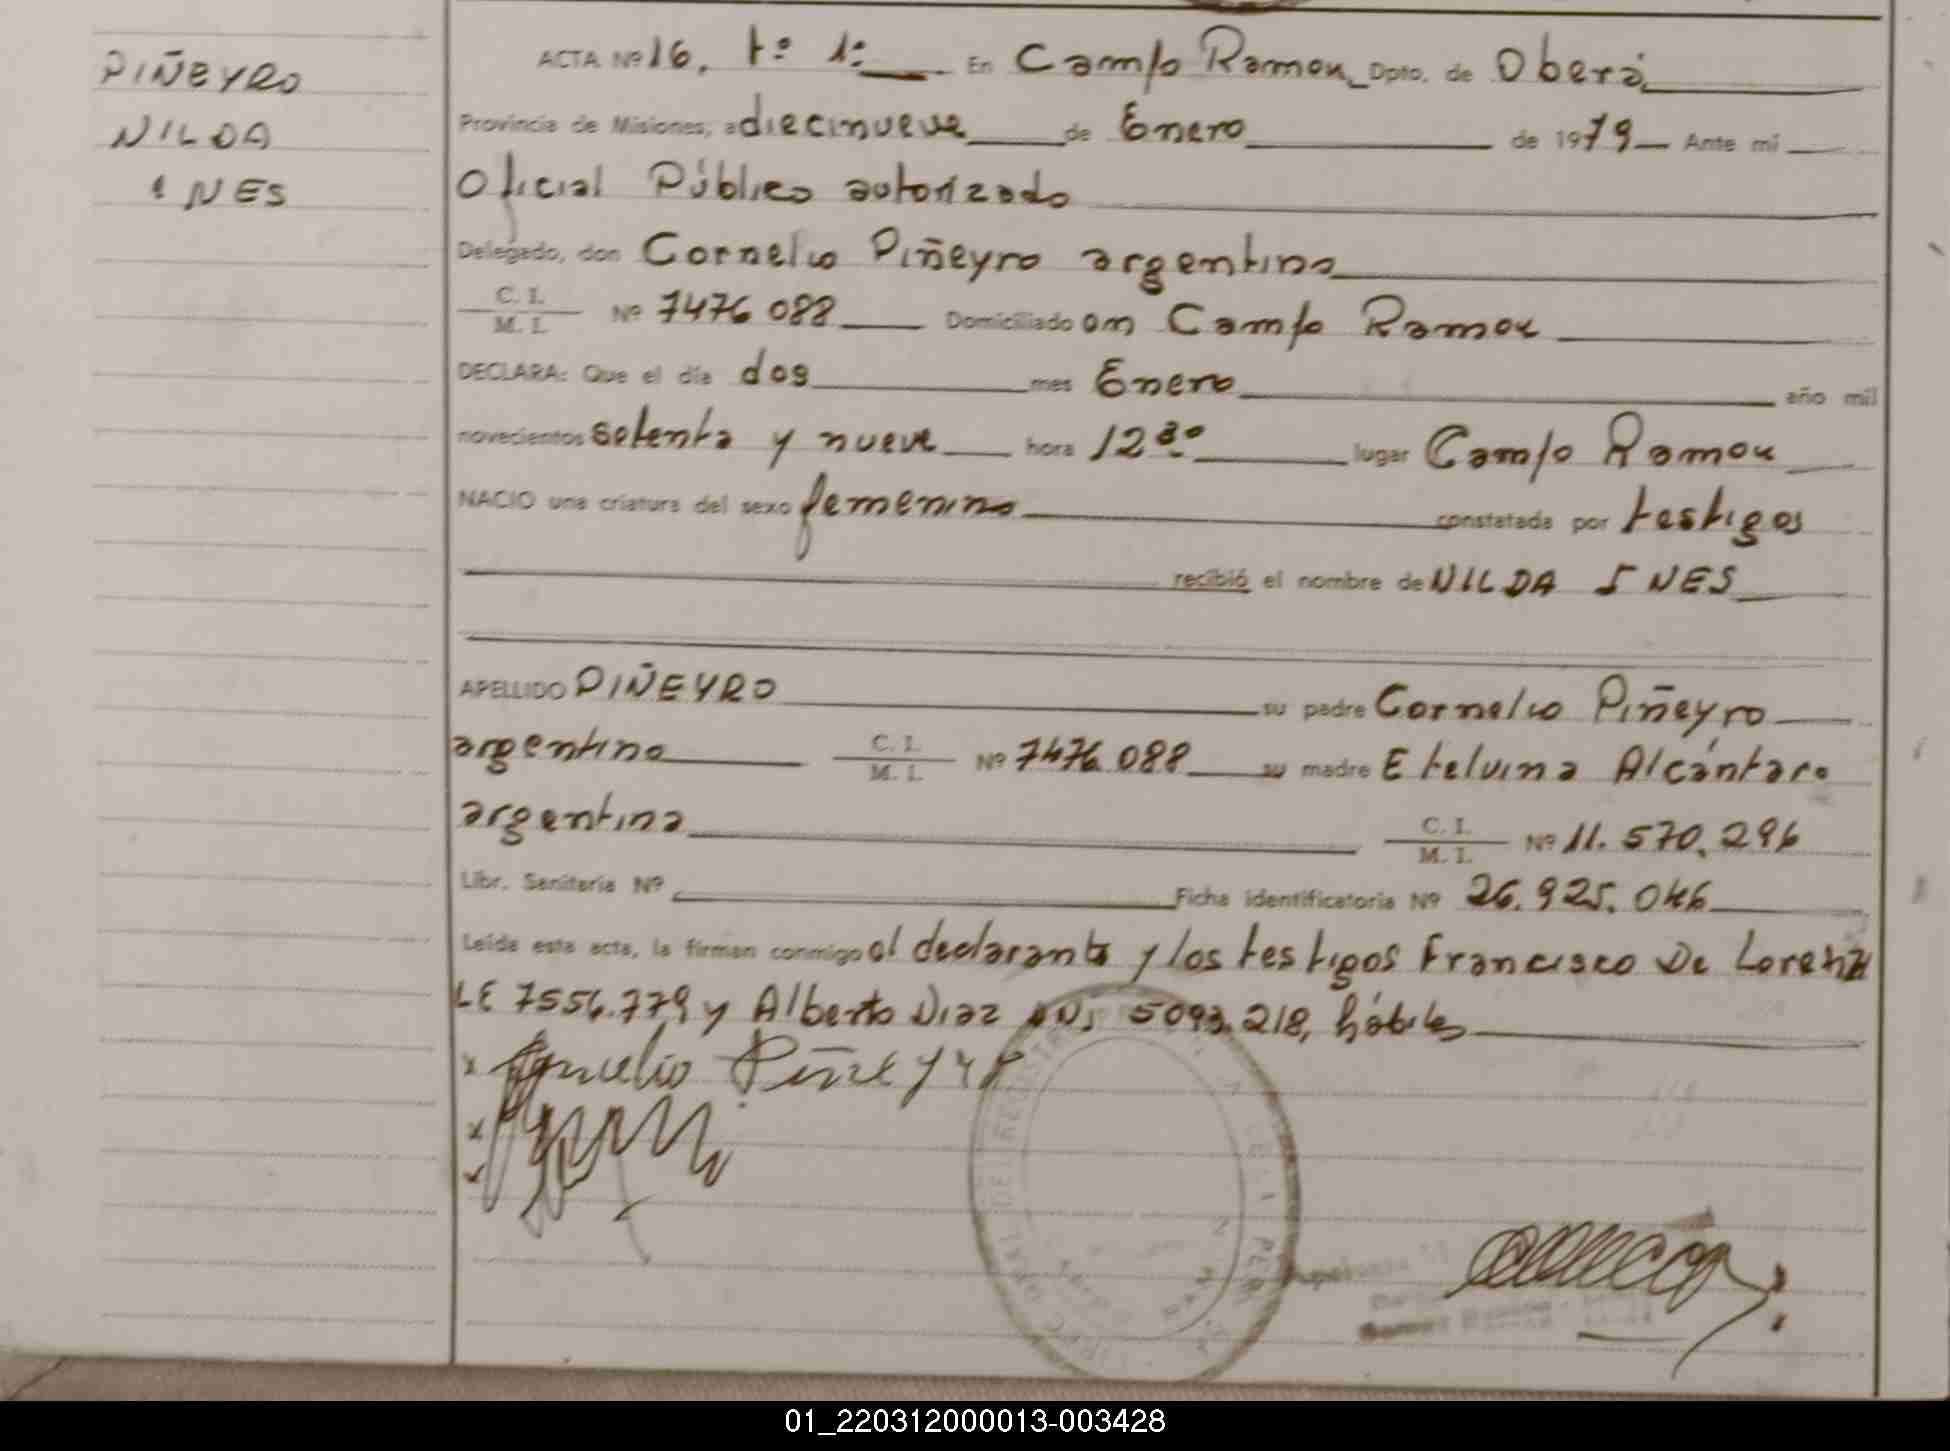 PIÑEYRO
NILDA
INES
ACTA Nº 16. tº 1º En Campo Ramon Dpto. de Oberá
Provincia de Misiones, a diecinueve de Enero de 1979 Ante mi
Oficial Público autorizado
Delegado, don Cornelio Piñeyro argentino
C. I.
M. I. Nº 7476088 Domiciliado en Campo Ramon
DECLARA: Que el día dos mes Enero año mil
novecientos setenta y nueve hora 12 30 lugar Campo Ramon
NACIO una criatura del sexo femenino constatada por testigos
recibió el nombre de NILDA INES
APELLIDO PIÑEYRO su padre Cornelio Piñeyro
argentino C. I.
M. I. Nº 7476088 su madre Etelvina Alcántara
argentina C. I.
M. I. Nº 11.570.296
Libr. Sanitaria Nº Ficha identificatoria Nº 26.925.046
Leída esta acta, la firman conmigo el declarante y los testigos Francisco De Lorenzi
LE 7556.779 y Alberto Diaz DNI 5093.218, hábiles
x Cornelio Piñeyro
x
01_220312000013-003428